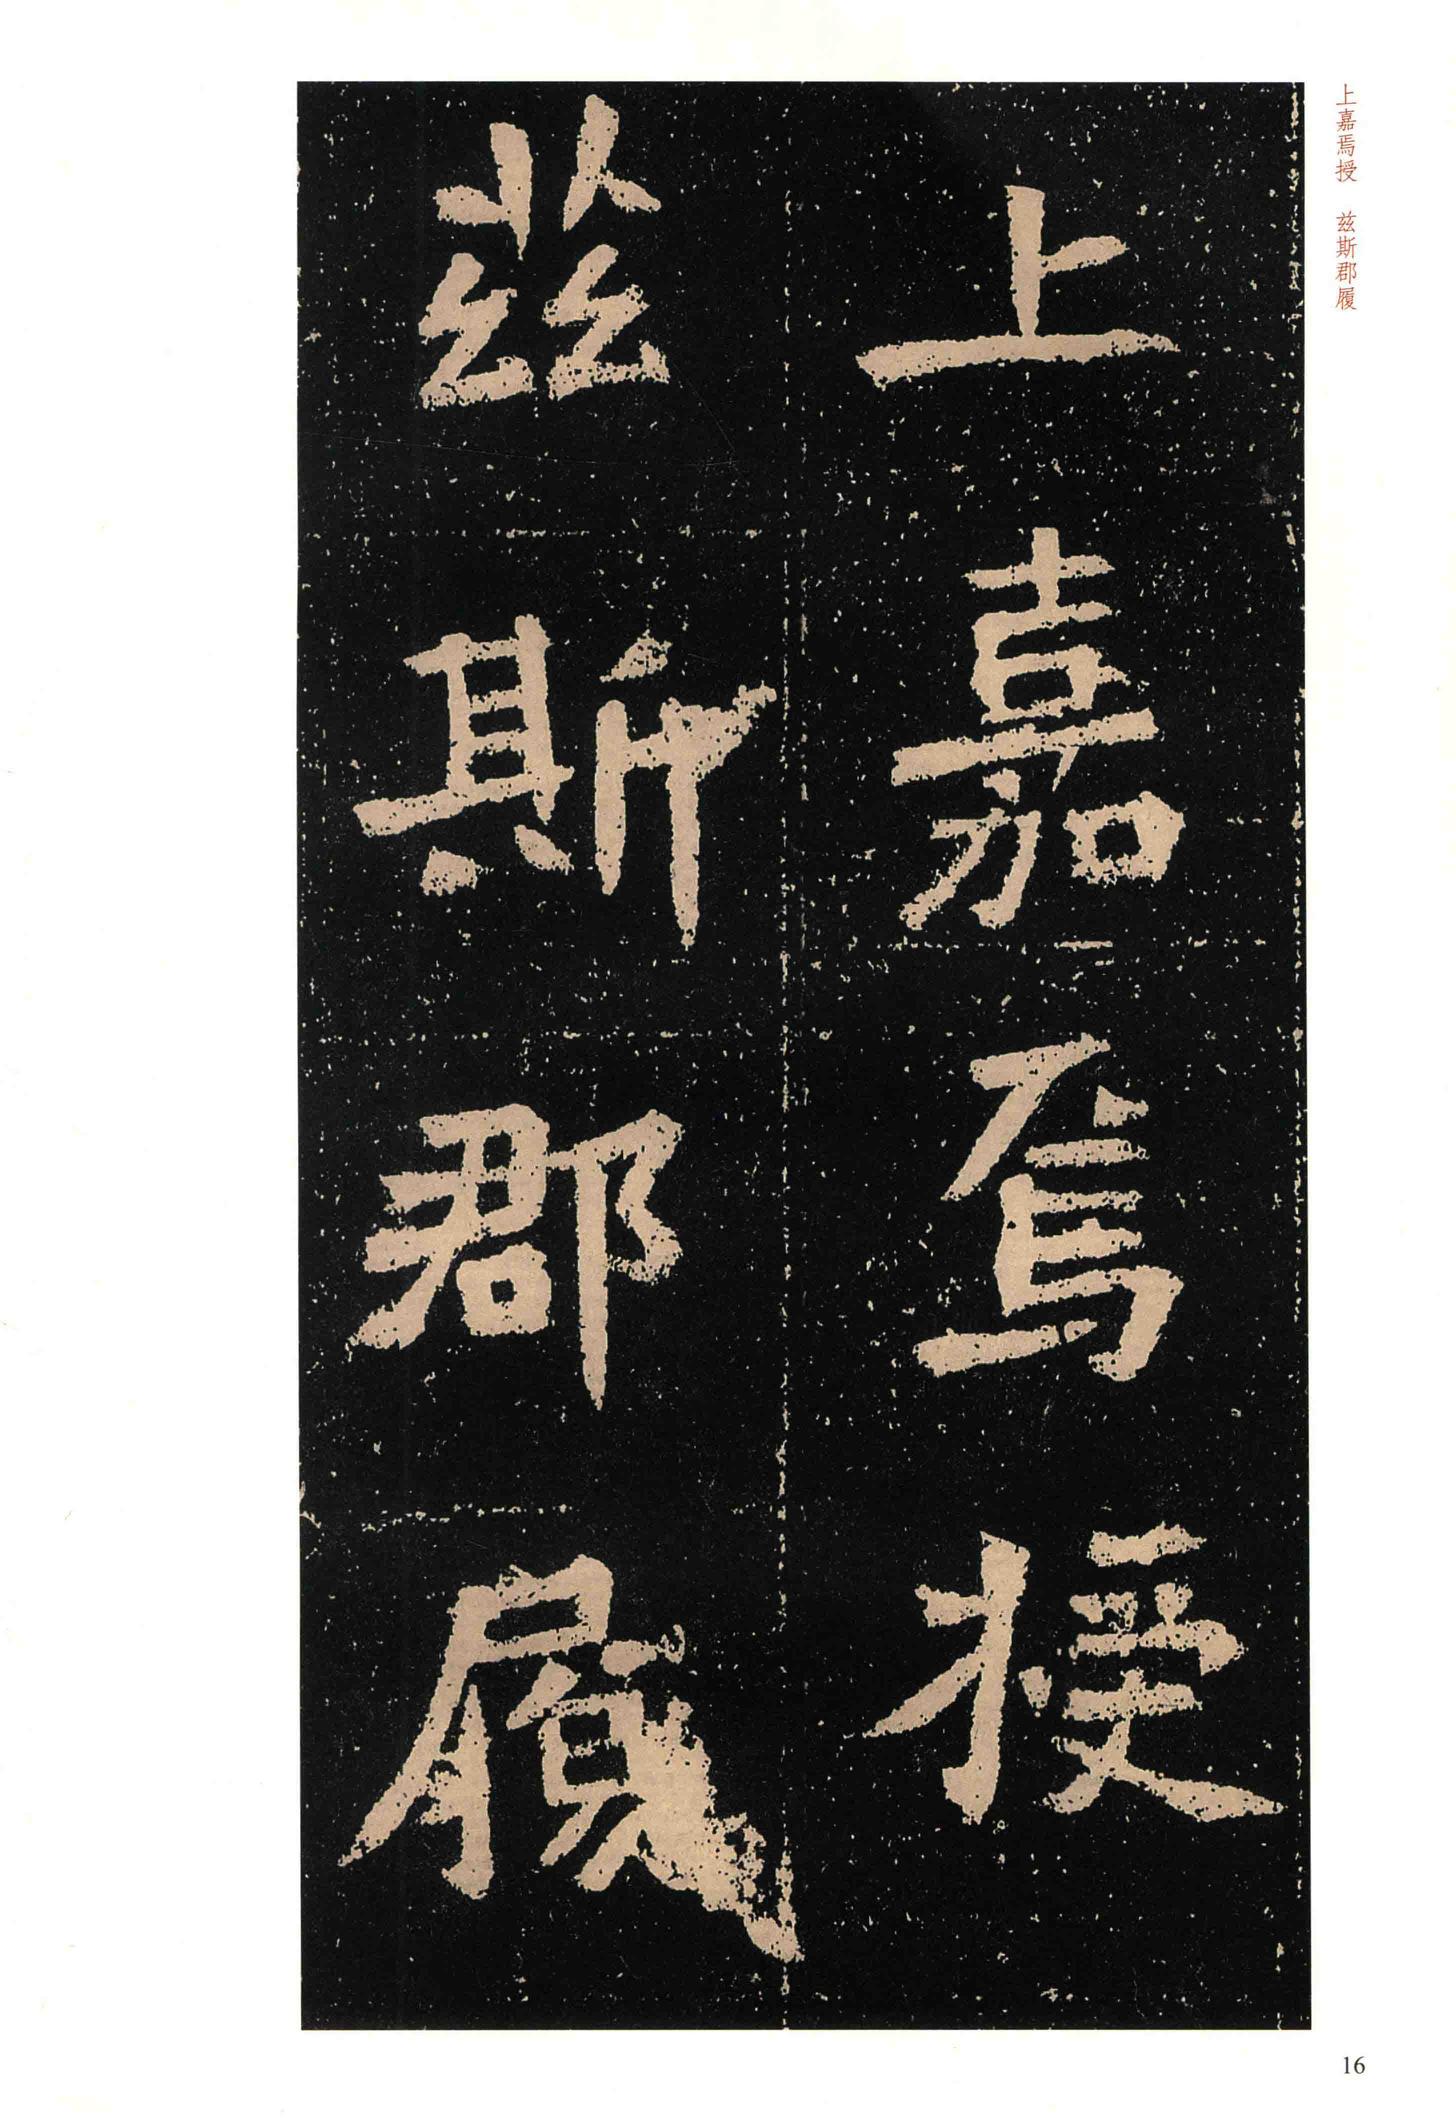 上嘉焉授 兹斯郡履
上嘉焉授
兹斯郡履
16